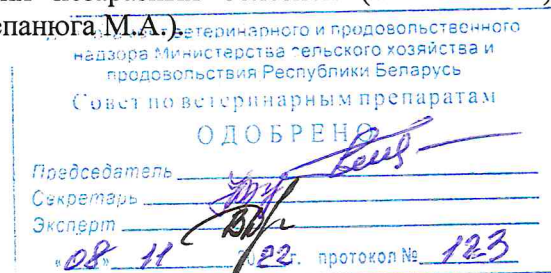 епанюга М.А.).
ветеринарного и продовольственного
надзора Министерства сельского хозяйства и
продовольствия Республики Беларусь
Совет по ветеринарным препаратам
ОДОБРЕНО
Председатель
Секретарь
Эксперт
«08» 11 2022г. протокол № 123